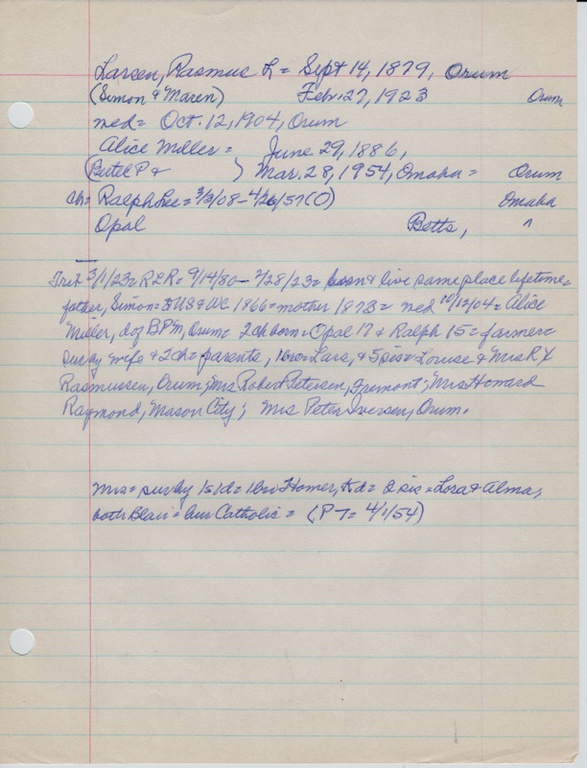 Larsen, Rasmus L = Sept 14, 1879, Orum
(Simon & Maren) Feb. 27, 1923 Orum
med = Oct. 12, 1904, Orum
Alice Miller = June 29, 1886,
(Butel P & ) Mar. 28, 1954, Omaha = Orum
ch = Ralph Lee = 3/3/08 - 4/26/57 (O) Omaha
Opal Betts, ^
Trib 3/1/23 = RLR = 9/14/80 - 2/28/23 = born & live same place lifetime =
father, Simon = to US & WC 1866 = mother 1873 = med 10/12/04 = Alice
Miller, d of BPM, Orum = 2 ch born = Opal 17 & Ralph 15 = farmer =
sur by wife & 2 ch = parents, 1 bro = Lars, & 5 sis = Louise & Mrs R
Rasmussen, Orum; Mrs Robert Petersen, Fremont; Mrs Howard
Raymond, Mason City; Mrs Peter Iversen, Orum.
Mrs = sur by 1 s 1 d = 1 bro Homer, = 2 sis = Lora & Alma,
both Blair = Catholic = (P T = 4/1/54)